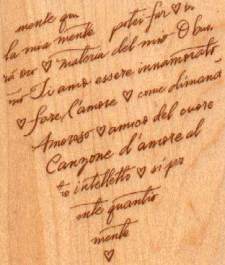 mente qu
la mia mente poter far ♡ vi
rà ove ♡ materia del mio D bun
mo Ti amo essere innamorato
♡ fare, l'amore ♡ come dimana
Amoroso ♡ amico del cuore
Canzone d'amore al
tro intelletto ♡ si per
ente quanto
mente
♡